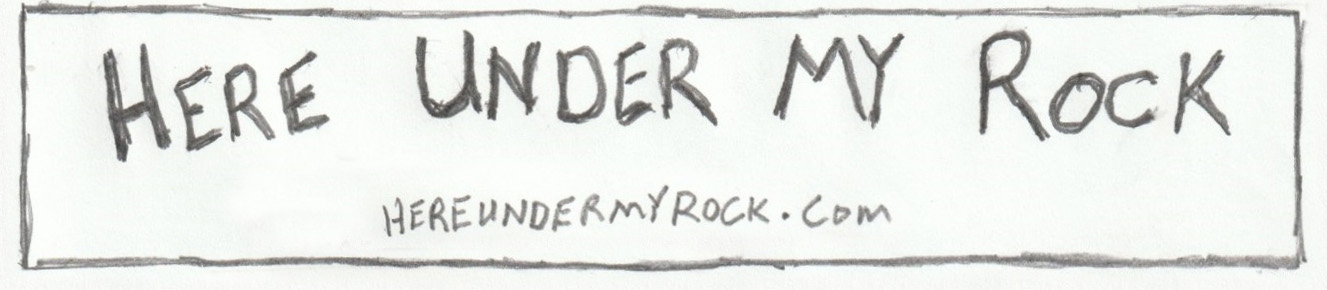 HERE UNDER MY ROCK
HEREUNDERMYROCK.COM